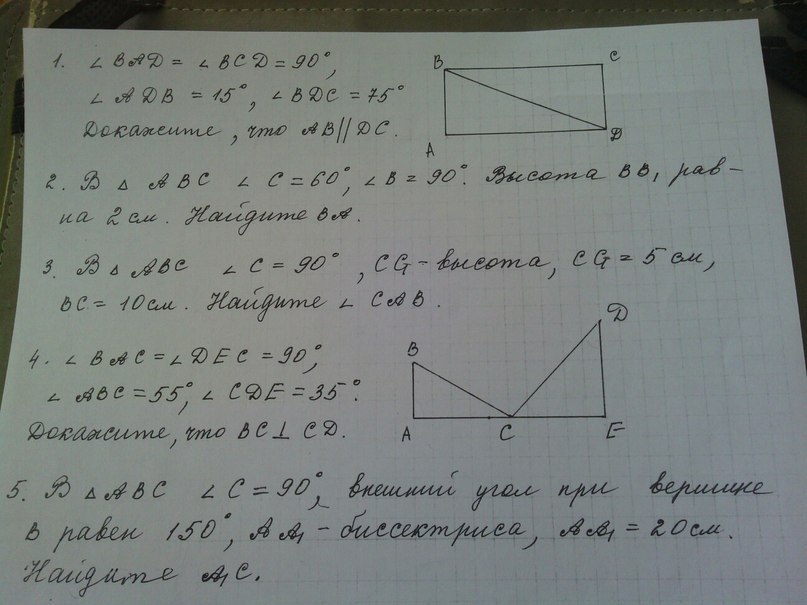 1. ∠BAD = ∠BCD = 90°,
∠ADB = 15°, ∠BDC = 75°
Докажите, что AB || DC.
B
C
A
D
2. В △ ABC ∠C = 60°, ∠B = 90°. Высота BB₁ рав-
на 2 см. Найдите BA.
3. В △ ABC ∠C = 90°, CG - высота, CG = 5 см,
BC = 10 см. Найдите ∠CAB.
4. ∠BAC = ∠DEC = 90°,
∠ABC = 55°, ∠CDE = 35°.
Докажите, что BC ⊥ CD.
D
B
A
C
E
5. В △ ABC ∠C = 90°, внешний угол при вершине
B равен 150°, AA₁ - биссектриса, AA₁ = 20 см.
Найдите A₁C.